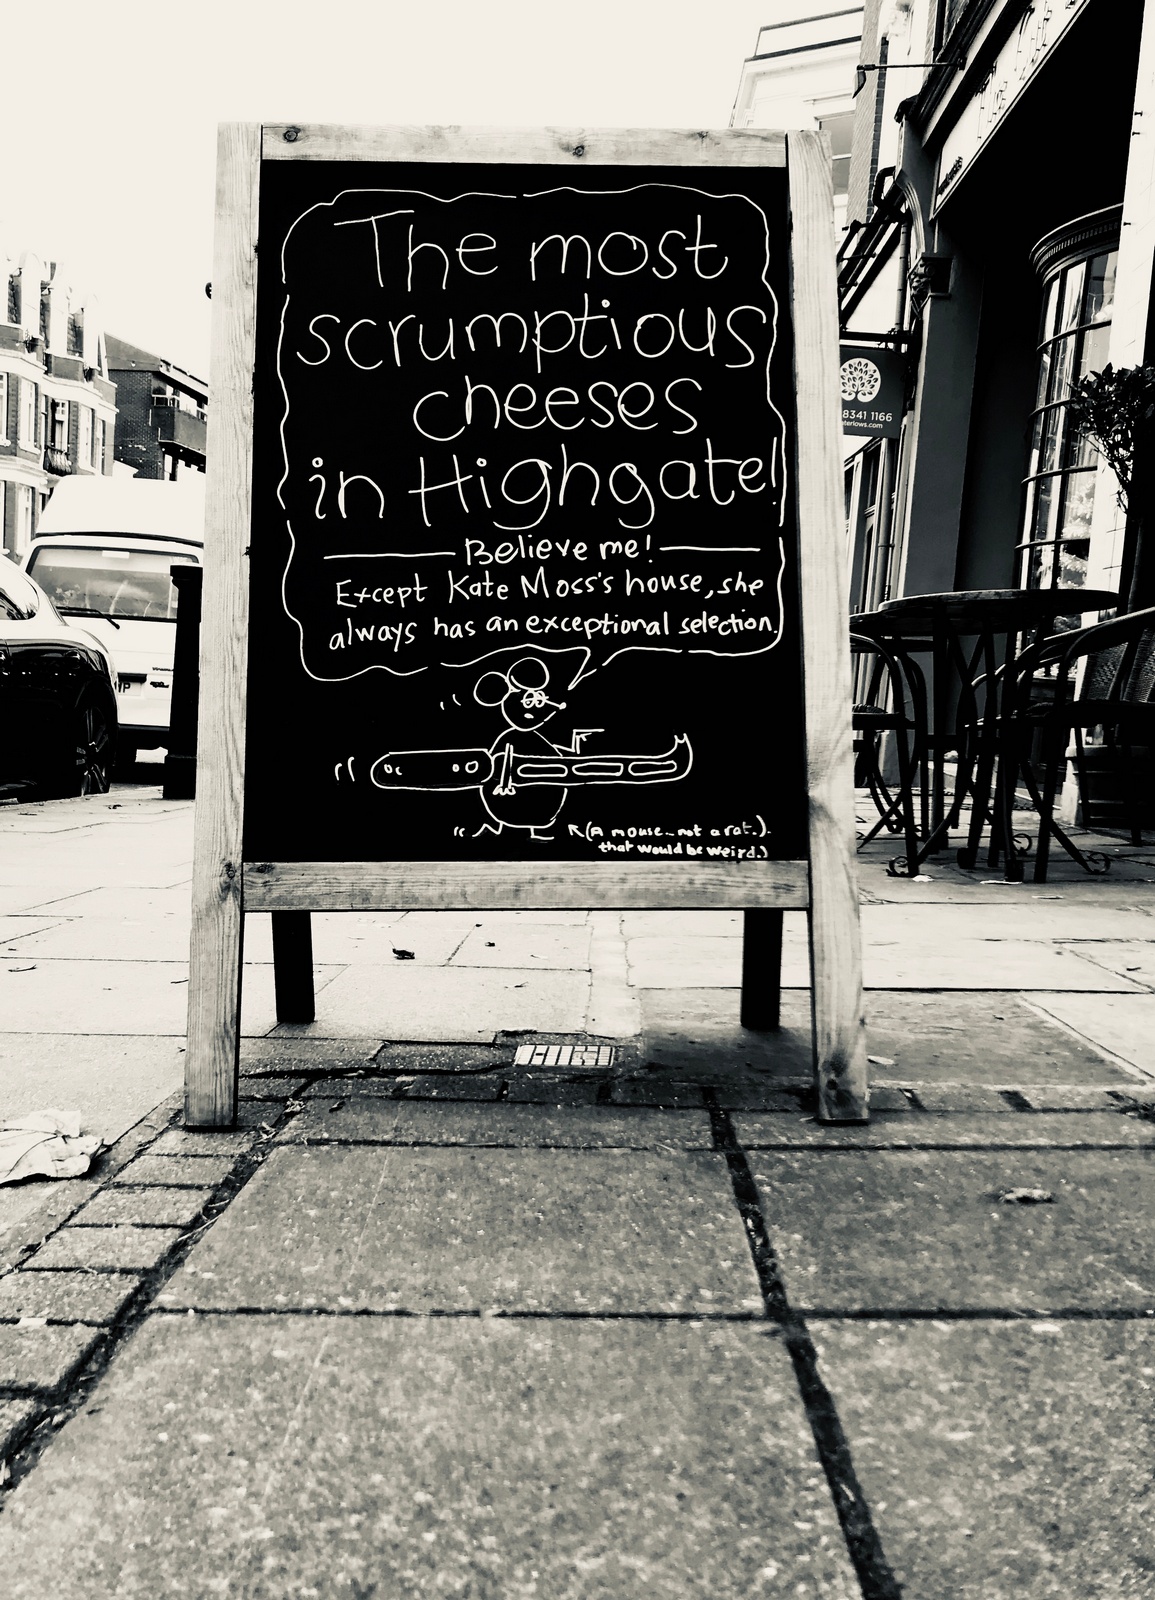 The most
scrumptious
cheeses
in Highgate!
Believe me!
Except Kate Moss's house, she
always has an exceptional selection.
(A mouse - not a rat.).
that would be weird.)
8341 1166
terlows.com